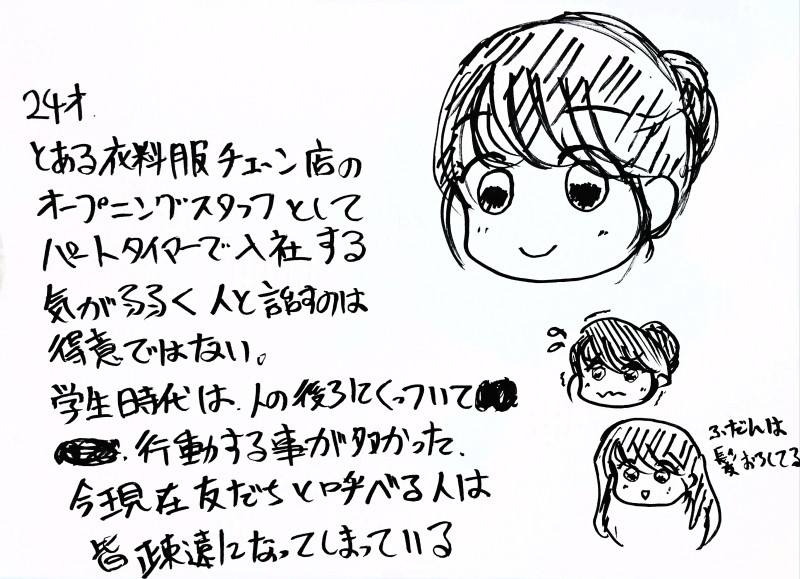 24才
とある衣料服チェーン店の
オープニングスタッフとして
パートタイマーで入社する
気が弱く人と話すのは
得意ではない。
学生時代は、人の後ろにくっついて
行動する事が多かった、
今現在友だちと呼べる人は
皆疎遠になってしまっている
ふだんは
髪おろしてる